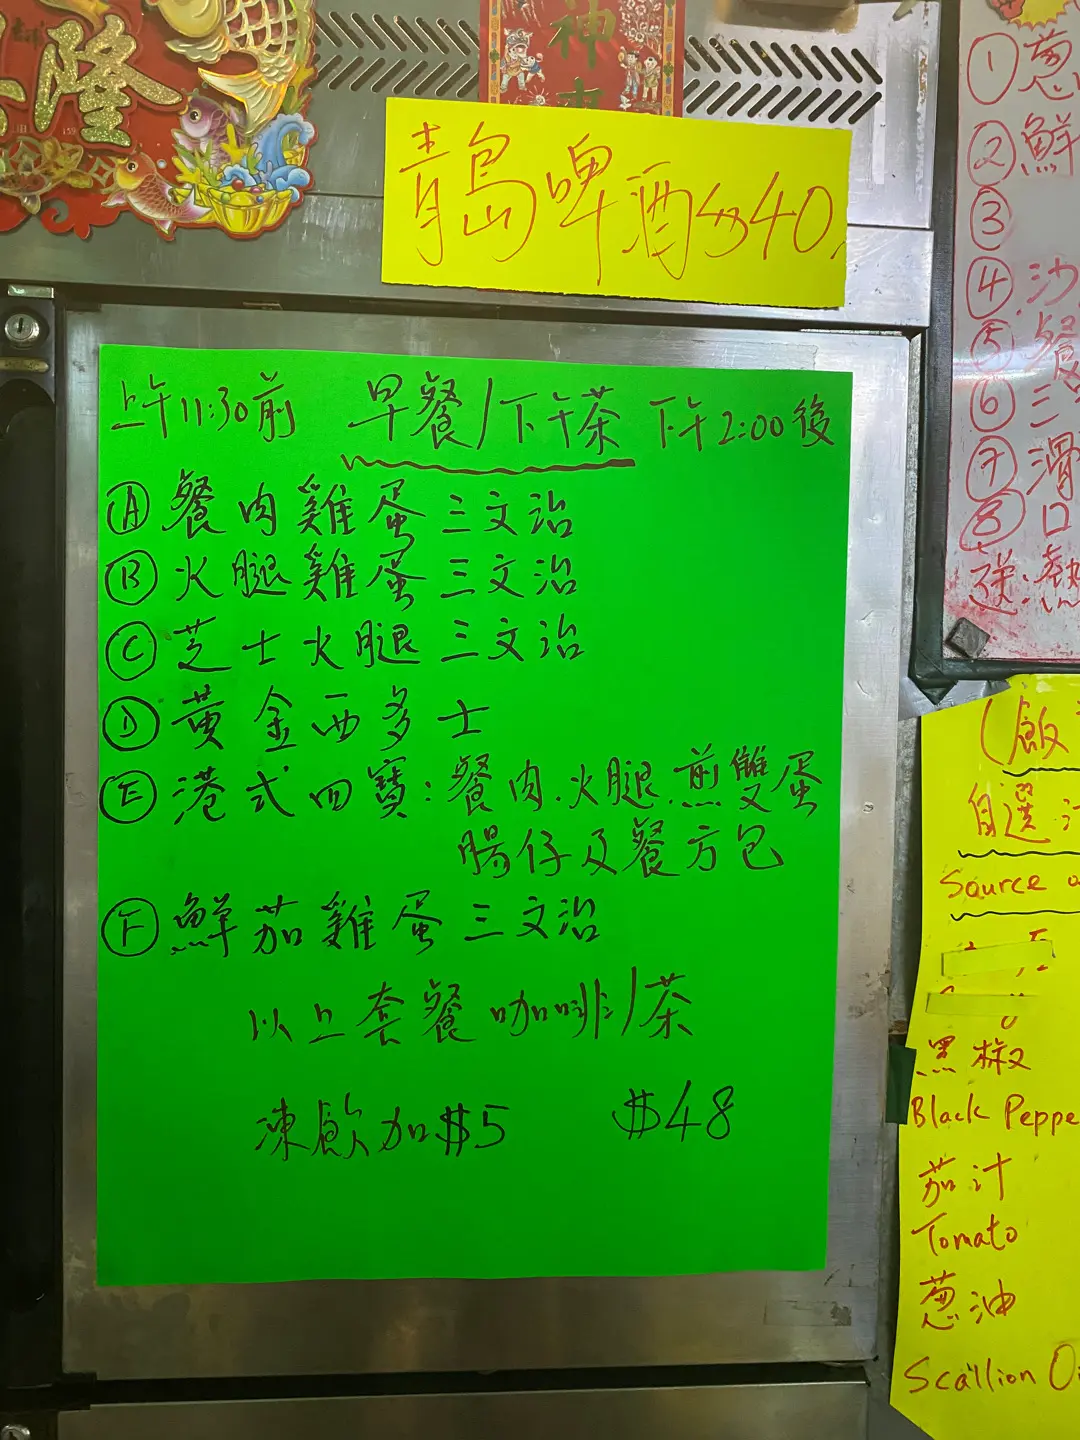 隆
神
青島啤酒 $40
上午11:30前 早餐/下午茶 下午2:00後
Ⓐ 餐肉雞蛋三文治
Ⓑ 火腿雞蛋三文治
Ⓒ 芝士火腿三文治
Ⓓ 黃金西多士
Ⓔ 港式四寶:餐肉.火腿.煎雙蛋
腸仔及餐方包
Ⓕ 鮮茄雞蛋三文治
以上套餐咖啡/茶
凍飲加$5 $48
① 蔥
② 鮮
③
④ 沙
⑤ 餐
⑥ 三
⑦ 滑
⑧ 口
送:熱
(飯
自選
Source
黑椒
Black Peppe
茄汁
Tomato
蔥油
Scallion O